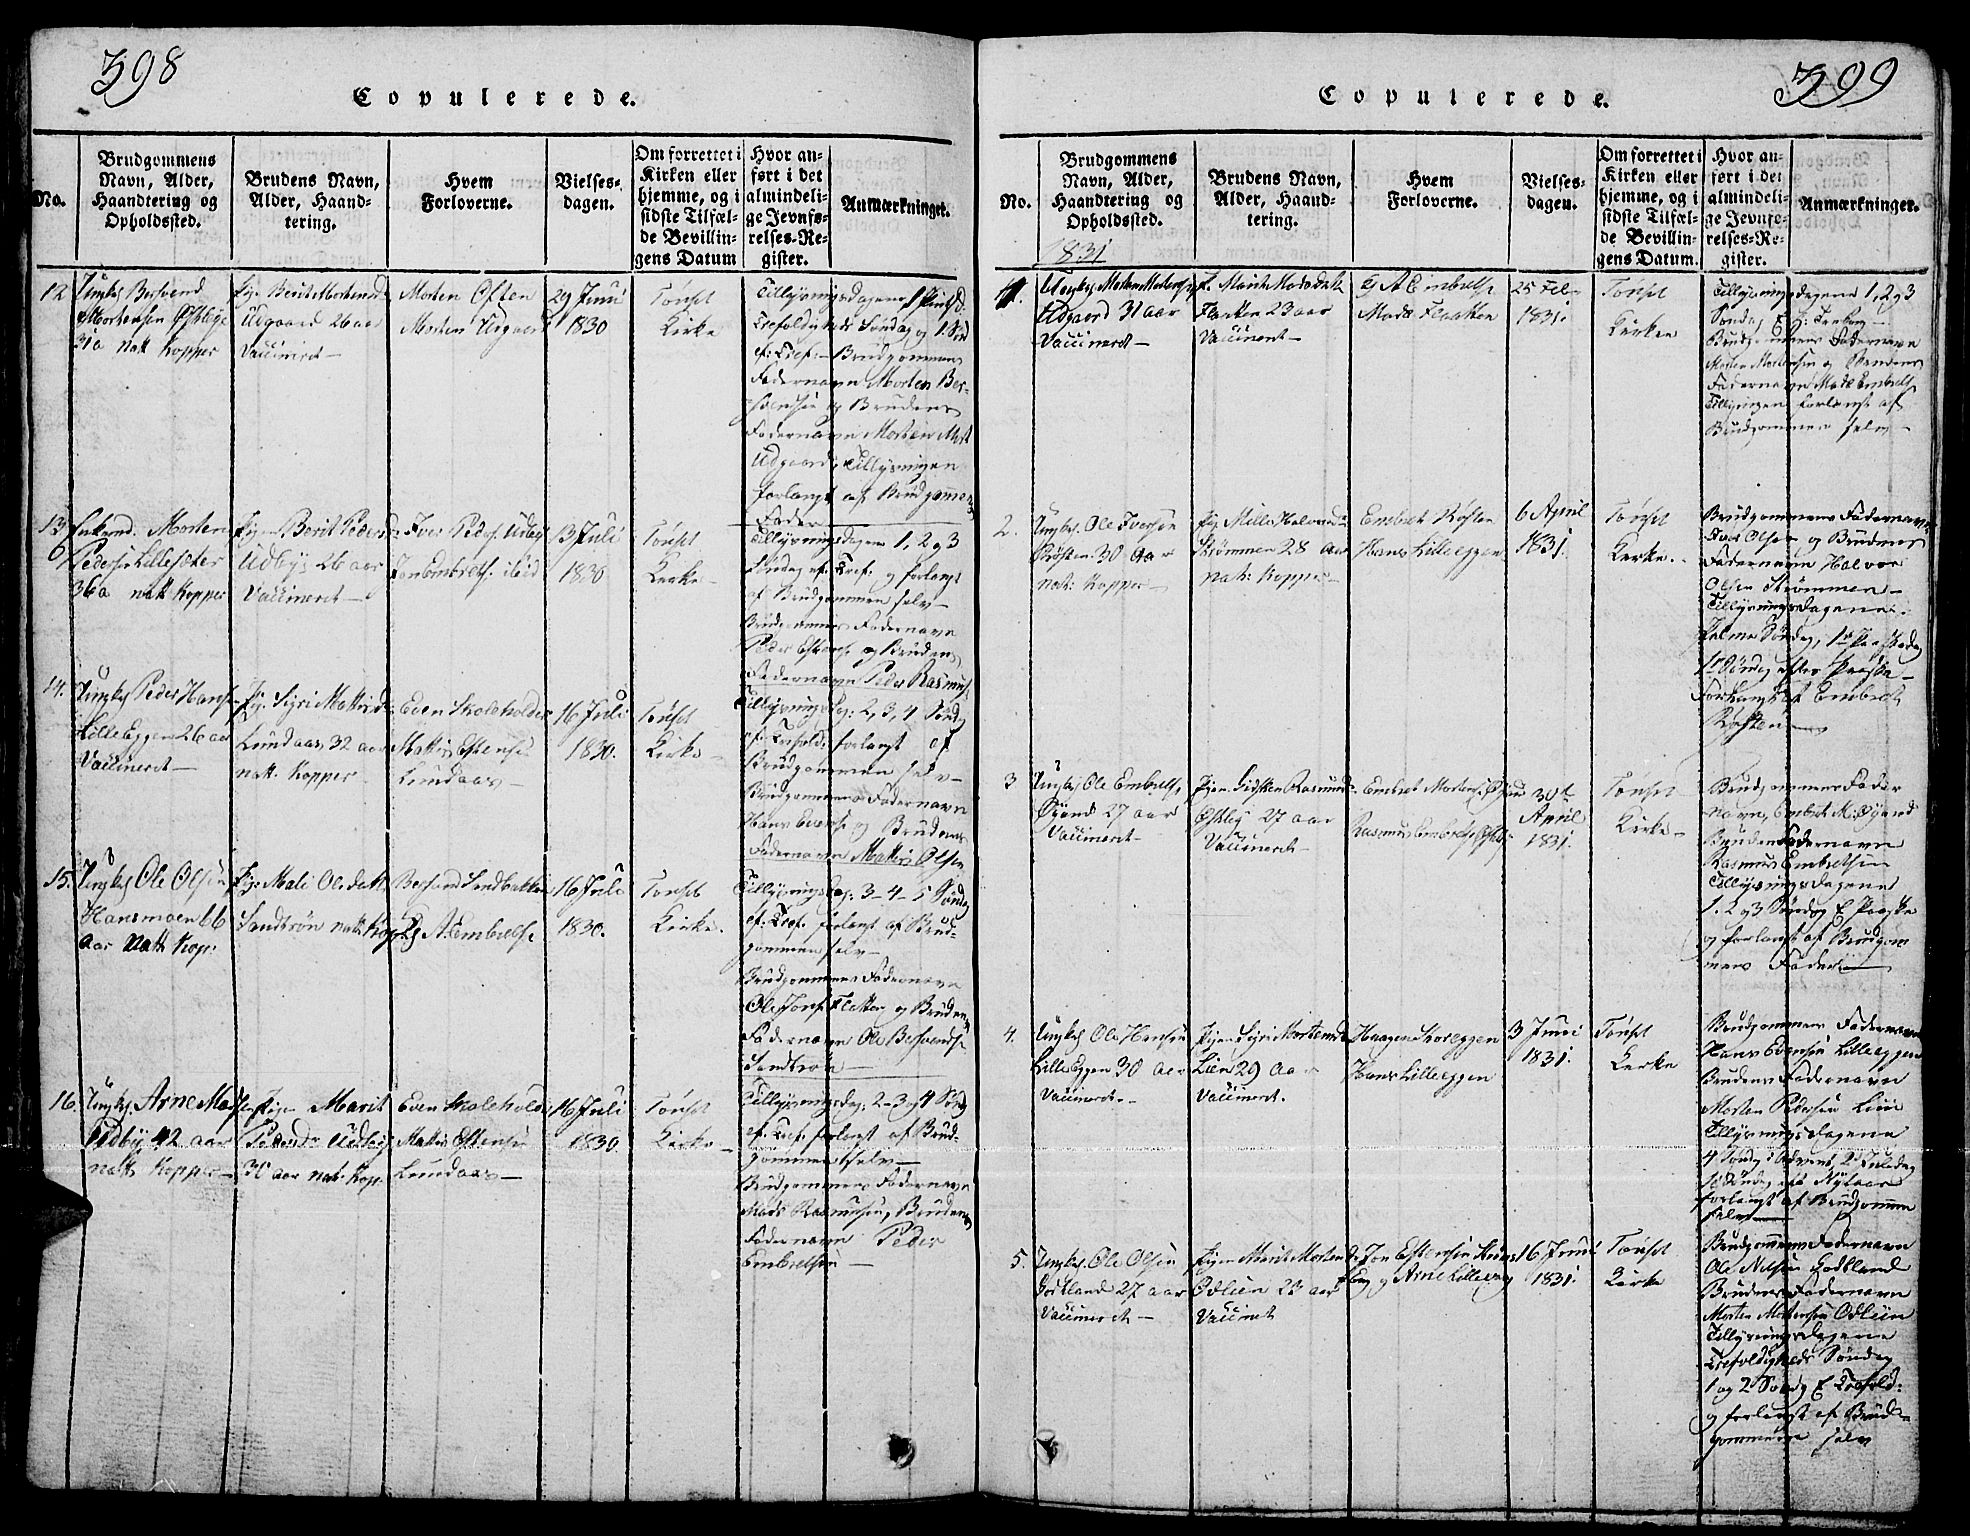 398
Copulerede.
No.
Brudgommens
Navn, Alder,
Haandtering og
Opholdssted.
Brudens Navn,
Alder, Haand-
tering.
Hvem
Forloverne.
Vielses-
dagen.
Om forrettet i
Kirken eller
hjemme, og i
sidste Tilfæl-
de Bevillin-
gens Datum
Hvor an-
ført i det
almindeli-
ge Jevnfø-
relses-Re-
gister.
Anmærkninger.
12
Ungk: Bersvend
Mortensen
31 a natt Kopper
Pige Berit Mortensd
Udgaard 26 aar
Vaccineret —
Morten Often
Morten Udgaard
29 Juni
1830
Tønset
Kirke
Tillysningsdagene
Trefoldigheds Søndag og 1 Sønd
ef: Tref: — Brudgommens
Fadernavn Morten Ber-
svensen og Brudens
Fadernavn Morten Mort
Udgaard, Tillysningen
forlangt af Brudgommens
Fader
13
Enkemd. Morten
Peders: Lillesæter
36 a natt Kopper
Pige Berit Pedersd:
Udbye 26 aar
Vaccineret —
Iver Peders. Udby
Jon Embretsen ibid
13 Juli
1830
Tønset
Kirke —
Tillysningsdagene 1, 2 og 3
Søndag ef. Tref. og forlangt
af Brudgommen selv —
Brudgommens Fadernavn
Peder Estens: og Brudens
Fadernavn Peder Rasmus:
14.
Ungk: Peder Hans:
Lille Eggen 26 aar
Vaccineret —
Pige Sigri Mattisd:
Lundaas, 32 aar
natt. Kopper
Even Skoleholder
Mattis Estensen
Lundaas —
16 Juli
1830.
Tønset
Kirke —
Tillysningsdag: 2, 3, 4 Søndag
ef. Trefold. forlangt af
Brudgommen selv —
Brudgommens Fadernavn
Hans Evens: og Brudens
Fadernavn Mattis Olsen
15.
Ungk: Ole Olsen
Hansmoen 66
Aar Natt. Kop:
Pige Mali Olsdatt.
Sandtrøn natt. Kop:
Bersvend Sandbakken
og A Embretsen
16 Juli
1830.
Tønset
Kirke.
Tillysningsdag: 3 – 4 – 5 Søndag
ef. Tref. forlangt af Brud-
gommen selv —
Brudgommens Fadernavn
Ole Jons: Flatten og Brudens
Fadernavn Ole Bersvends:
Sandtrøn —
16.
Ungk: Arne Mads:
Udby 42 aar
natt. Kopper —
Pige Marit
Pedersd: Udbye
30 aar nat. Kop.
Even Skoleholder
Mattis Estensen
Lundaas —
16 Juli
1830.
Tønset
Kirke —
Tillysningsdag: 2 – 3 og 4 Søndag
ef. Tref. forlangt af Brud-
gommen selv —
Brudgommens Fadernavn
Mads Rasmussen, Brudens
Fadernavn Peder
Embretsen —
399
Copulerede.
No.
Brudgommens
Navn, Alder,
Haandtering og
Opholdssted.
Brudens Navn,
Alder, Haand-
tering.
Hvem
Forloverne.
Vielses-
dagen.
Om forrettet i
Kirken eller
hjemme, og i
sidste Tilfæl-
de Bevillin-
gens Datum.
Hvor an-
ført i det
almindeli-
ge Jevnfø-
relses-Re-
gister.
Anmærkninger.
1831
1.
Ungk: Morten Mortensen
Udgaard 31 aar
Vaccineret —
P. Marit Madsdatt
Flatten 23 aar
Vaccineret —
A Embretsen
Mads Flaatten
25 Feb.
1831.
Tønset
Kirken
Tillysningsdagene 1, 2 og 3
Søndag
Brudgommens Fadernavn
Morten Mortensen og Brudens
Fadernavn Mads Embrets:
Tillysningen forlangt af
Brudgommen selv —
2.
Ungk: Ole Iversen
Røsten 30 Aar
nat: Kopper —
Pige Mille Halvordsd:
Strømmen 28 Aar
nat: Kopper —
Embret Røsten
Hans Lilleeggen
6 April
1831.
Tønset
Kirke.
Brudgommens Fadernavn
Iver Olsen og Brudens
Fadernavn Halvor
Olsen Strømmen —
Tillysningsdagene.
Palme Søndag, 1ste Paaskedag
1 Søndag efter Paaske —
Forlanget Embret
Røsten —
3
Ungk: Ole Embrets:
Øyend 27 aar
Vaccineret —
Pigen Sidsken Rasmusd:
27 aar
Vaccineret —
Embret Mortens. Øyen
Rasmus Embrets:
30te
April
1831.
Tønset
Kirke —
Brudgommens Fader
navn, Embret M. Øyend
Brudens Fadernavn
Rasmus Embretsen
Tillysningsdagene
1. 2 og 3 Søndag E Paaske
og forlangt af Brudgom
mens Fader —
4.
Ungk: Ole Hansen
Lille Eggen 30 Aar
Vaccineret. —
Pigen Sigri Mortensd
Lien 29 Aar
Vaccineret.
Haagen Storeggen
Hans Lilleeggen
3 Juni
1831.
Tønset
Kirke
Brudgommens Fadernavn
Hans Evensen Lilleeggen
Brudens Fadernavn
Morten Pedersen Lien
Tillysningsdagene
4 Søndag i Advent, 2 Juledag
1 Søndag e Nytaar
forlangt af Brudgommen
selv —
5.
Ungk: Ole Olsen
Godtland 27 aar
Vaccineret —
Pigen Marit Mortensd:
Odlien 23 aar
Vaccinet
Jon Estensen
og Arne Lilleeng
16 Juni
1831.
Tønset
Kirke
Brudgommens Fadernavn
Ole Nilsen Godtland
Brudens Fadernavn
Morten Mortensen Odlien
Tillysningsdagene
Trefoldigheds Søndag
1 og 2 Søndag E Trefold:
og forlangt af Brud-
gommen selv